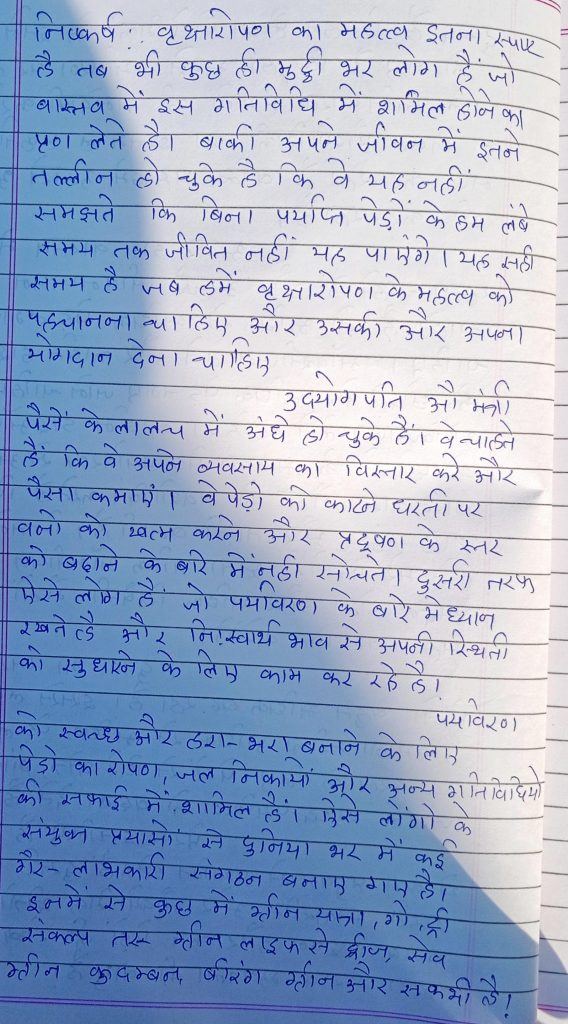 निष्कर्ष: वृक्षारोपण का महत्व इतना स्पष्ट
है तब भी कुछ ही मुट्ठी भर लोग हैं जो
वास्तव में इस गतिविधि में शामिल होने का
प्रण लेते है। बाकी अपने जीवन में इतने
तल्लीन हो चुके है कि वे यह नहीं
समझते कि बिना पर्याप्त पेड़ों के हम लंबे
समय तक जीवित नहीं यह पाएंगे। यह सही
समय है जब हमें वृक्षारोपण के महत्व को
पहचानना चाहिए और उसकी और अपना
योगदान देना चाहिए
उदयोगपति औ मंत्री
पैसें के लालच में अंधे हो चुके हैं। वे चाहते
हैं कि वे अपने व्यवसाय का विस्तार करे और
पैसा कमाएं। वे पेड़ो को काटने धरती पर
वनो को खत्म करने और प्रदूषण के स्तर
को बढाने के बारे में नही सोचते। दुसरी तरफ
ऐसे लोग हैं जो पर्यावरण के बारे मे ध्यान
रखते है और नि:स्वार्थ भाव से अपनी स्थिती
को सुधारने के लिए काम कर रहे है।
पर्यावरण
को स्वच्छ और हरा-भरा बनाने के लिए
पेड़ो का रोपण, जल निकायों और अन्य गतिविधियो
की सफाई में शामिल हैं। ऐसे लोंगो के
संयुक्त प्रयासों से दुनिया भर में कई
गैर-लाभकारी संगठन बनाए गए है।
इनमें से कुछ में ग्रीन यात्रा, गो, ट्री
संकल्प तरु ग्रीन लाइफ से सेव
ग्रीन बीरंग ग्रीन और है!